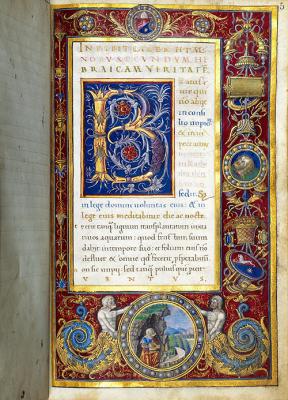 5
INCIPIT LIBER HYM
NORVM SECVNDVM HE
BRAICAM VERITATĒ
B EATVS
vir qui
nō abiit
in consi
lio impioꝝ
& in uia
sedit. Sꝫ
in lege domini uoluntas eius: & in
lege eius meditabitur die ac nocte.
erit tanq̃ lignum transplantatum iuxta
riuos aquarum: quod fructum suum
dabit in tempore suo: & folium eius nō
defluet & omne qđ fecerit, prosperabitur
Nō sic impii: sed tanq̃ puluis quē proiicit
VENTVS.